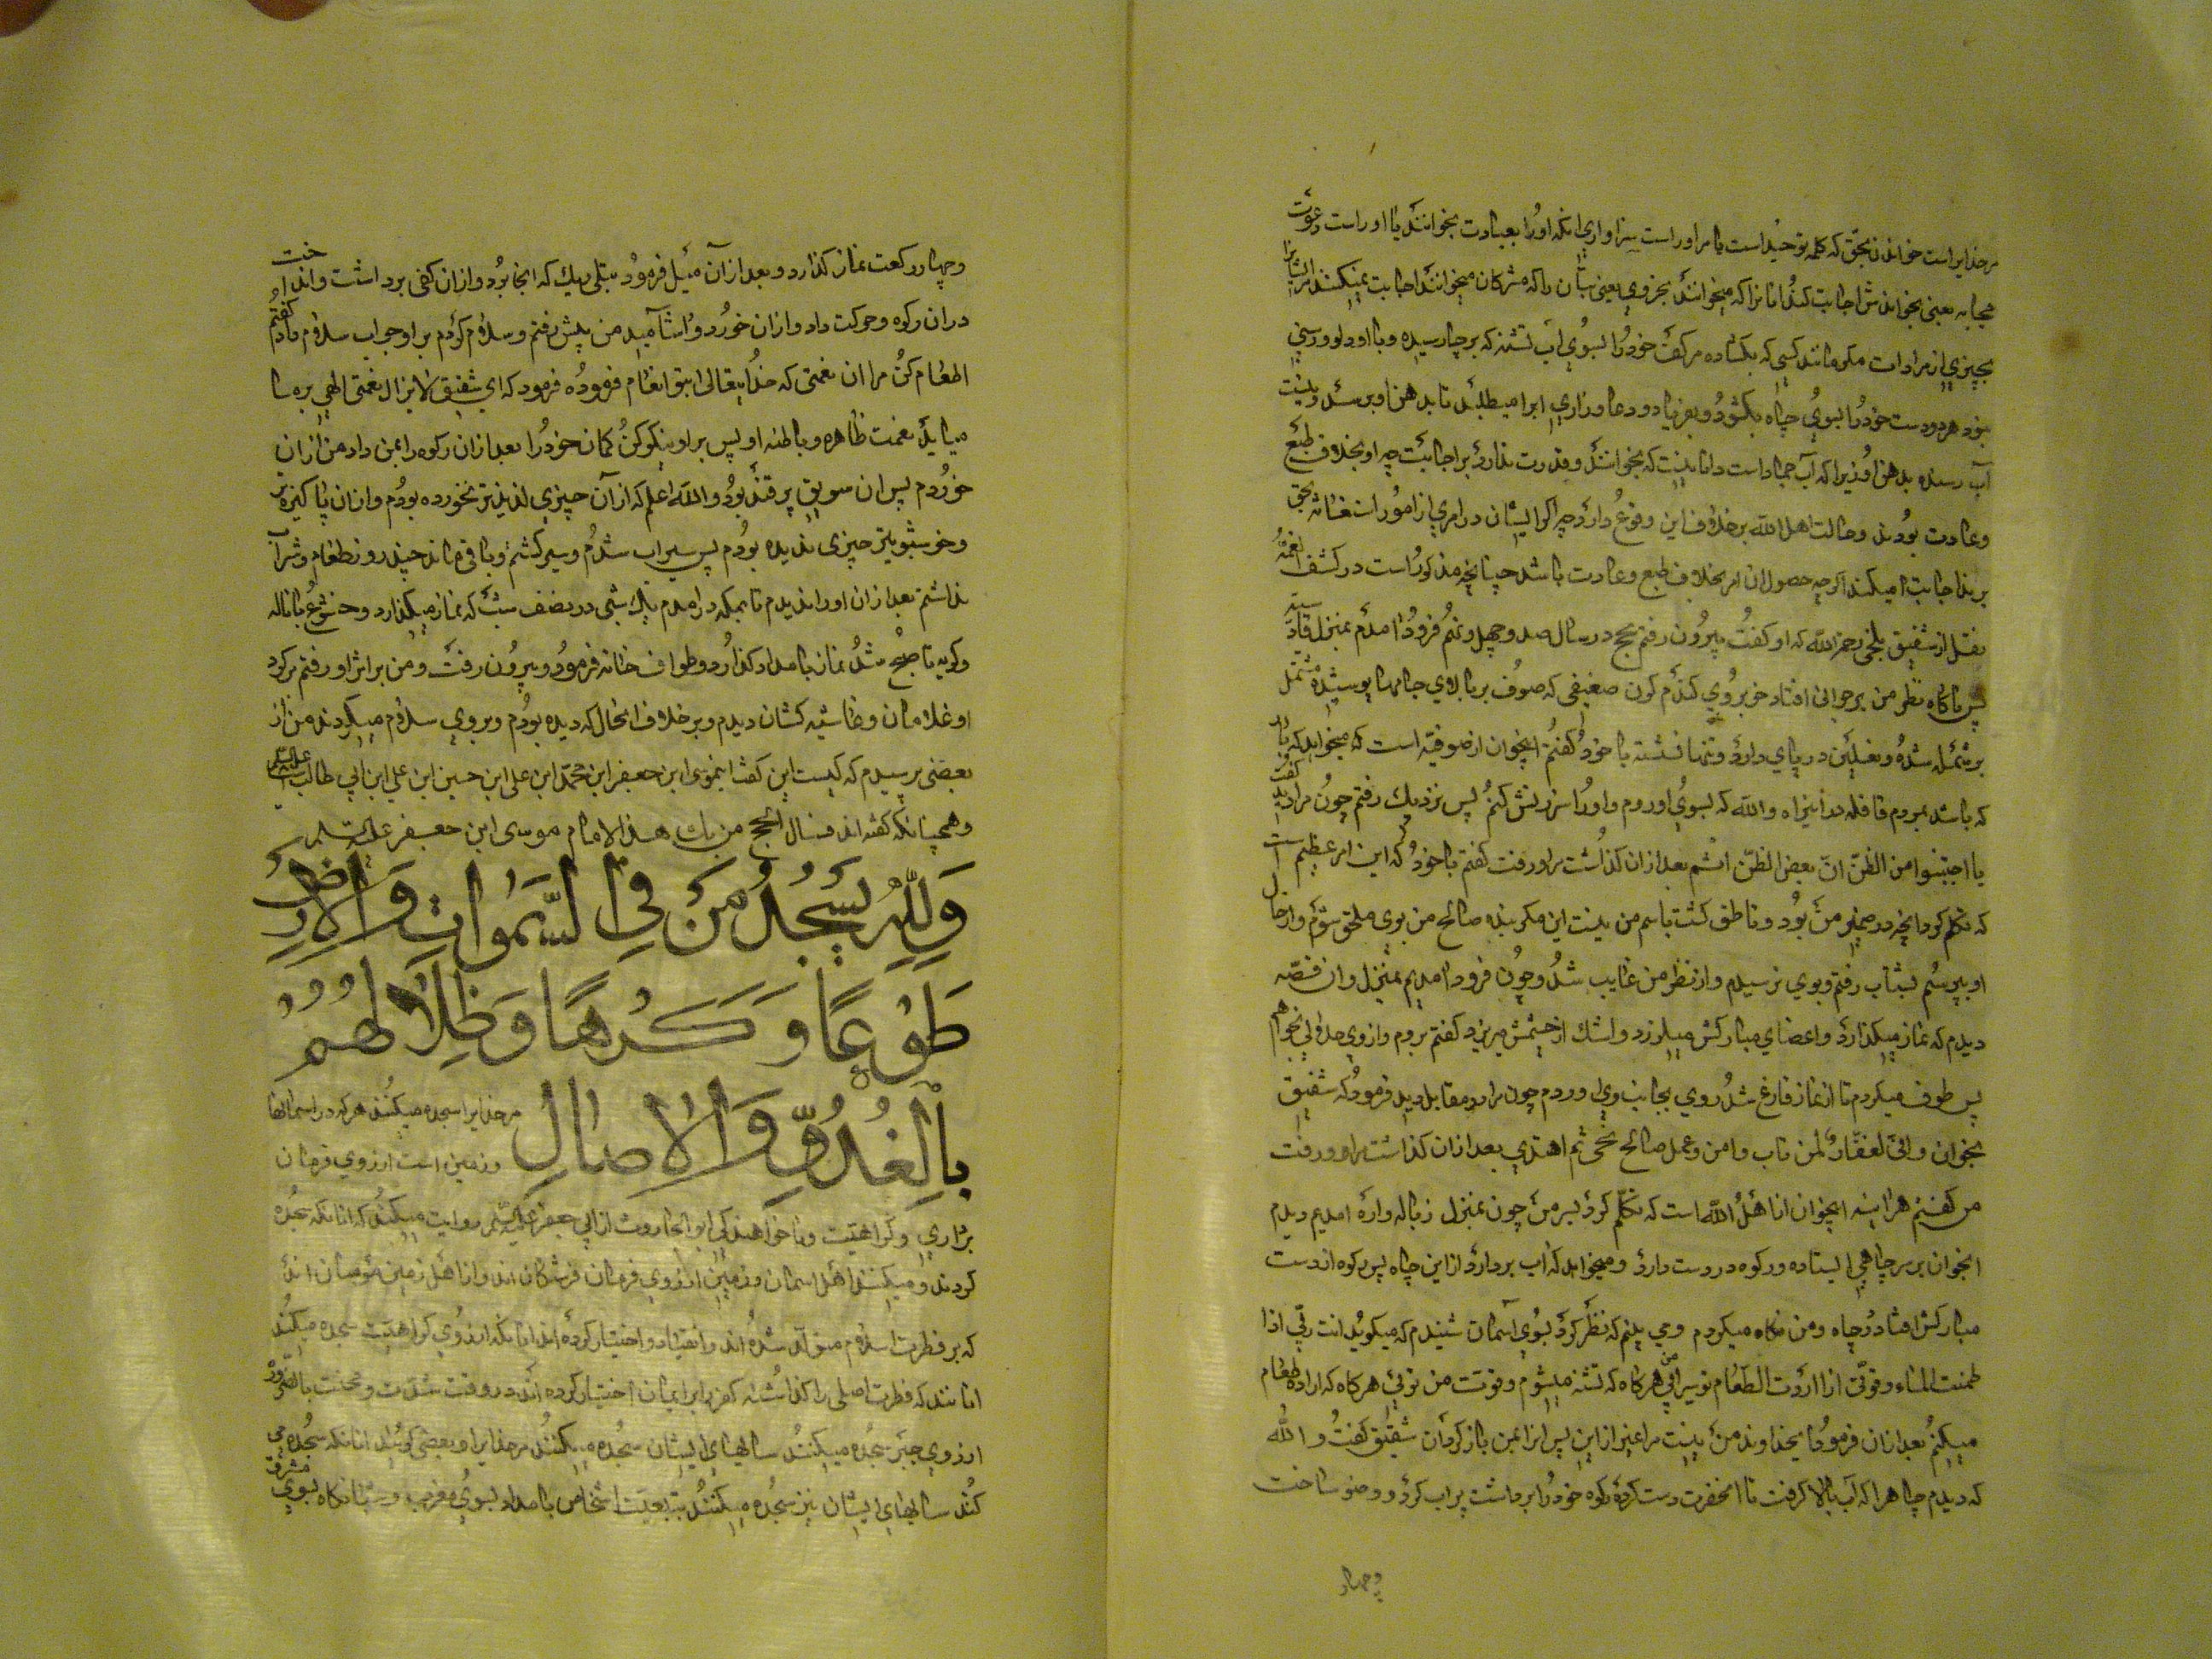 مرخدایراست خواندن بحق که کلمه توحیداست یا مراوراست سزاواری انکه اورا بعبادت بخوانند یا اوراست دعوت
مجابه یعنی بخواندش اجابت کند وانانرا که میخوانند بجزوی یعنی بتان را که مشرکان میخوانند اجابت نمیکنند ایشانرا
بچیزی از مرادات مکر مانند کسی که بکشاده مرکف خودرا بسوی اب تشنه که برچاه رسیده وبا اودلو ورسنی
نبود هردودست خودرا بسوی چاه بکشود وبفریاد ودعا وزاری ابرا میطلبد تا بدهن او برسد ونیست
آب رسیده بدهن او زیرا که آب جماداست ودانا نیست که بخوانند وقدرت ندارد بر اجابت چه او بخلاف طبع
وعادت بودند وحالت اهل الله برخلاف این وقوع دارد چه اکر ایشان در امری از امور استغاثه بحق
برند اجابت میکند اکرچه حصول ان امر بخلاف طبع وعادت باشد چنانچه مذکوراست در کشف الغمة
نقل از شفیق بلخی رحمه الله که او کفت بیرون رفتم بحج درسال صد وچهل ونهم فرود امدم بمنزل قادسیه
پس ناکاه نظر من برجوانی افتاد خوبروی کندم کون ضعیفی که صوف بر بالای جامها پوشیده مشتمل
برشمله شده ونعلین در پای دارد وتنها نشسته با خود کفتم اینجوان از صوفیه است که میخواهد که بار
که باشد بمردم قافله در اینراه والله که بسوی اوروم واورا سرزنش کنم پس نزدیک رفتم چون مرا دید کفت
یا اجتنبوا من الظن ان بعض الظن اثم بعد ازان کذاشت مرا ورفت کفتم با خود که این امر عظیم است
که تکلم کرد انچه در ضمیر من بود وناطق کشت باسم من نیست این مکر بنده صالح من بوی ملحق شوم واز حال
او بپرسم بشتاب رفتم وبوی نرسیدم واز نظر من غایب شد وچون فرود امدیم بمنزل واقصه
دیدم که نماز میکذارد واعضای مبارکش میلرزد واشک از چشمش میریزد کفتم بروم وازوی حلالی بخواهم
پس طوف میکردم تا از نماز فارغ شد روی بجانب وی اوردم چون مرا در مقابل دید فرمود که شفیق
بخوان وانی لغفار لمن تاب وامن وعمل صالحا ثم اهتدی بعد ازان کذاشت مرا ورفت
من کفتم هراینه اینجوان از اهل الله است که تکلم کرد بسر من چون بمنزل زباله وارد امدیم دیدم
انجوان برسر چاهی ایستاده ورکوه دردست دارد ومیخواهد که اب بردارد از این چاه پس رکوه از دست
مبارکش افتاد در چاه ومن نکاه میکردم ومی بینم که نظر کرد بسوی آسمان شنیدم که میکوید انت ربی اذا
ظمئت الماء وقوتی اذا اردت الطعام تو سیرابی من هرکاه که تشنه میشوم وقوت من توئی هرکاه که اراده طعام
میکنم بعد ازان فرمود یا خداوند من نیست مرا غیر از این پس انرا بمن باز کردان شقیق کفت والله
که دیدم چاهرا که آب بالا کرفت تا انحضرت دست کرد ورکوه خودرا برداشت پر اب کرد ووضو ساخت
وچهار
وچهار رکعت نماز کذارد وبعد ازآن میل فرمود بتلی ریک که انجا بود وازان کفی برداشت وانداخت
دران رکوه وحرکت داد وازان خورد واشامید من پیش رفتم وسلام کردم بر او جواب سلام داد کفتم
اطعام کن مرا ان نعمتی که خدایتعالی بتو انعام فرموده فرمود که ای شفیق لایزال نعمتی الهی بره ما
میاید نعمت ظاهره وباطنه او پس بر او نیکو کن کمان خودرا بعد ازان رکوه را بمن داد من ازان
خوردم پس ان سویق پرقند بود والله اعلم که ازآن چیزی لذیذتر نخورده بودم وازان پاکیزه تر
وخوشبویتر چیزی ندیده بودم پس سیراب شدم وسیر کشتم وباقی ماند چند روز طعام وشراب
نداشتم بعد ازان اورا ندیدم تا بمکه درامدم یک شبی در نصف شب که نماز میکذارد وخشوع با ناله
وکریه تا صبح شد نماز بامداد کذارد وطواف خانه فرمود وبیرون رفت ومن براثر او رفتم برکرد
او غلامان وغاشیه کشان دیدم وبرخلاف انحال که دیده بودم وبروی سلام میکردند من از
بعضی پرسیدم که کیست این کفت اینموسی ابن جعفر ابن محمد ابن علی ابن حسین ابن علی ابن ابی طالب علیه السلم
وهمچنانکه کفته اند مسال الحج من بک هذا الامام موسی ابن جعفر علیه السلم
وَلِلّٰهِ یَسْجُدُ مَنْ فِی السَّمٰوَاتِ وَالْاَرْضِ
طَوْعًا وَكَرْهًا وَظِلَالُهُمْ
بِالْغُدُوِّ وَالْاٰصَالِ
مرخدایرا سجده میکنند هرکه در اسمانها
وزمین است ازروی فرمان
براری وکراهیت وناخواهندکی ابوالجارود از ابی جعفر علیه السلم روایت میکند که انانکه سجده
کردند ومیکنند اهل اسمان وزمین ازروی فرمان فرشتکان اند واز اهل زمین مؤمنان اند
که بر فطرت اسلام متولد شده اند وانقیاد واختیار کرده اند انانکه ازروی کراهیت سجده میکنند
انانند که فطرت اصلی را کذاشته کفر بر ایمان اختیار کرده اند در وقت شدت ومحنت بالضروره
ازروی جبر سجده میکنند سایهای ایشان سجده میکنند مرخدایرا وبعضی کویند انانکه سجده می
کنند سایهای ایشان نیز سجده میکنند بتبعیت اشخاص بامداد بسوی مغرب وشبانکاه بسوی مشرق